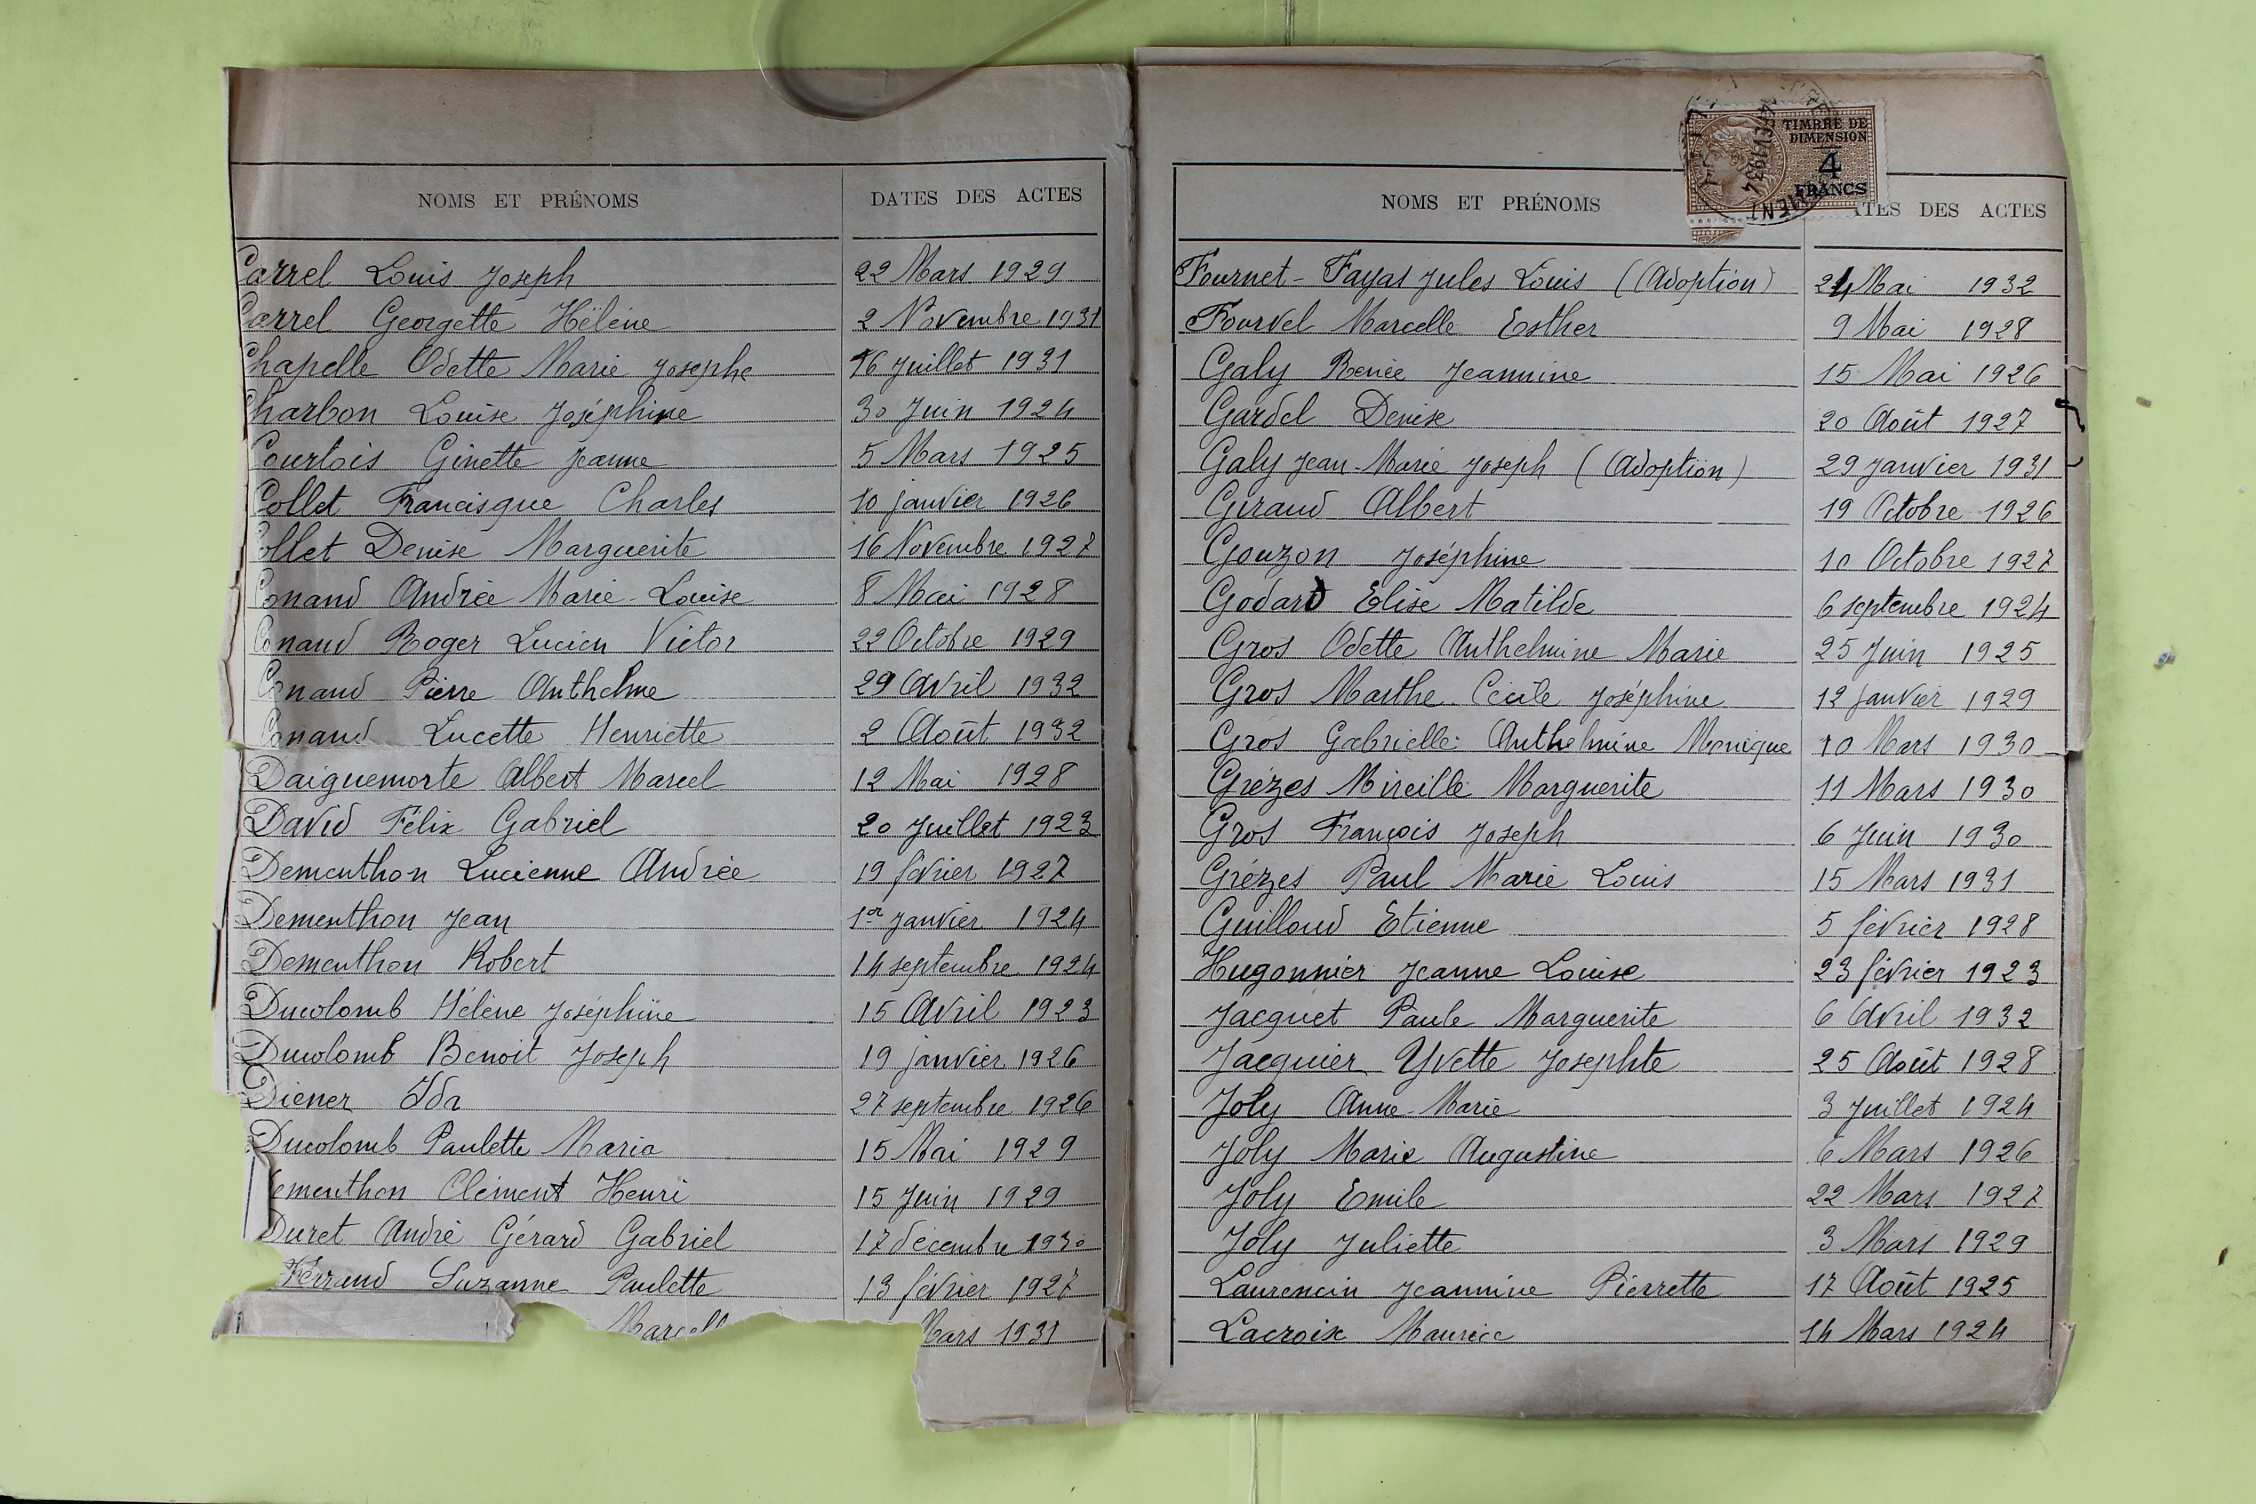 NOMS ET PRÉNOMS DATES DES ACTES
Carrel Louis Joseph 22 Mars 1929
Carrel Georgette Hélène 2 Novembre 1931
Chapelle Odette Marie Josephe 16 Juillet 1931
Charbon Louise Joséphine 30 Juin 1924
Courtois Ginette Jeanne 5 Mars 1925
Collet Francisque Charles 10 janvier 1926
Collet Denise Marguerite 16 Novembre 1927
Conand Andrée Marie-Louise 8 Mai 1928
Conand Roger Lucien Victor 22 Octobre 1929
Conand Pierre Anthelme 29 Avril 1932
Conand Lucette Henriette 2 Août 1932
Daiguemorte Albert Marcel 12 Mai 1928
David Félix Gabriel 20 Juillet 1923
Dementhon Lucienne Andrée 19 février 1927
Dementhon Jean 1er Janvier 1924
Dementhon Robert 14 septembre 1924
Ducolomb Hélène Joséphine 15 Avril 1923
Ducolomb Benoit Joseph 19 janvier 1926
Diener Ida 27 septembre 1926
Ducolomb Paulette Maria 15 Mai 1929
ementhon Clément Henri 15 Juin 1929
Duret André Gérard Gabriel 17 décembre 1930
Ferrand Suzanne Paulette 13 février 1927
Marcell Mars 1931
TIMBRE DE
DIMENSION
4
FRANCS
NOMS ET PRÉNOMS ATES DES ACTES
Fournet-Fayas Jules Louis (Adoption) 24 Mai 1932
Fourvel Marcelle Esther 9 Mai 1928
Galy Renée Jeannine 15 Mai 1926
Gardel Denise 20 Août 1927
Galy Jean-Marie Joseph (Adoption) 29 Janvier 1931
Giraud Albert 19 Octobre 1926
Gouzon Joséphine 10 Octobre 1927
Godard Elise Matilde 6 septembre 1924
Gros Odette Anthelmine Marie 25 Juin 1925
Gros Marthe Cécile Joséphine 12 janvier 1929
Gros Gabrielle Anthelmine Monique 10 Mars 1930
Grézes Mireille Marguerite 11 Mars 1930
Gros François Joseph 6 Juin 1930
Grézes Paul Marie Louis 15 Mars 1931
Guilloud Etienne 5 février 1928
Hugonnier Jeanne Louise 23 février 1923
Jacquet Paule Marguerite 6 Avril 1932
Jacquier Yvette Josephte 25 Août 1928
Joly Anne-Marie 3 Juillet 1924
Joly Marie Augustine 6 Mars 1926
Joly Emile 22 Mars 1927
Joly Juliette 3 Mars 1929
Laurencin Jeannine Pierrette 17 Août 1925
Lacroix Maurice 14 Mars 1924